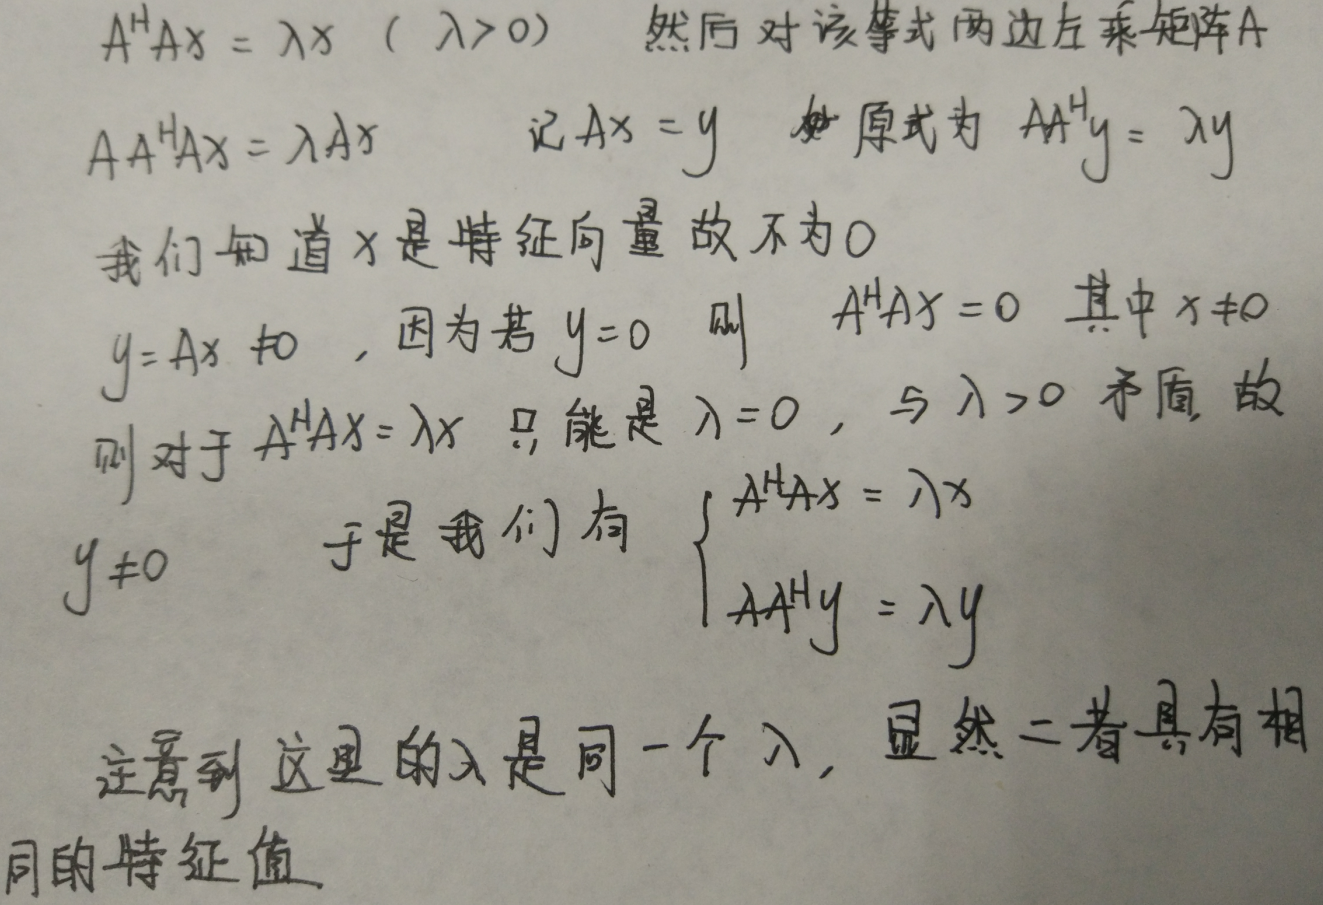 AᴴAx = λx ( λ>0) 然后对该等式两边左乘矩阵A
AAᴴAx = λAx 记Ax = y 原式为 AAᴴy = λy
我们知道x是特征向量故不为0
y = Ax ≠0 ,因为若 y=0 则 AᴴAx = 0 其中 x≠0
则对于 AᴴAx = λx 只能是 λ=0, 与λ>0 矛盾, 故
y≠0 于是我们有 { AᴴAx = λx
AAᴴy = λy
注意到这里的λ是同一个λ, 显然二者具有相
同的特征值.